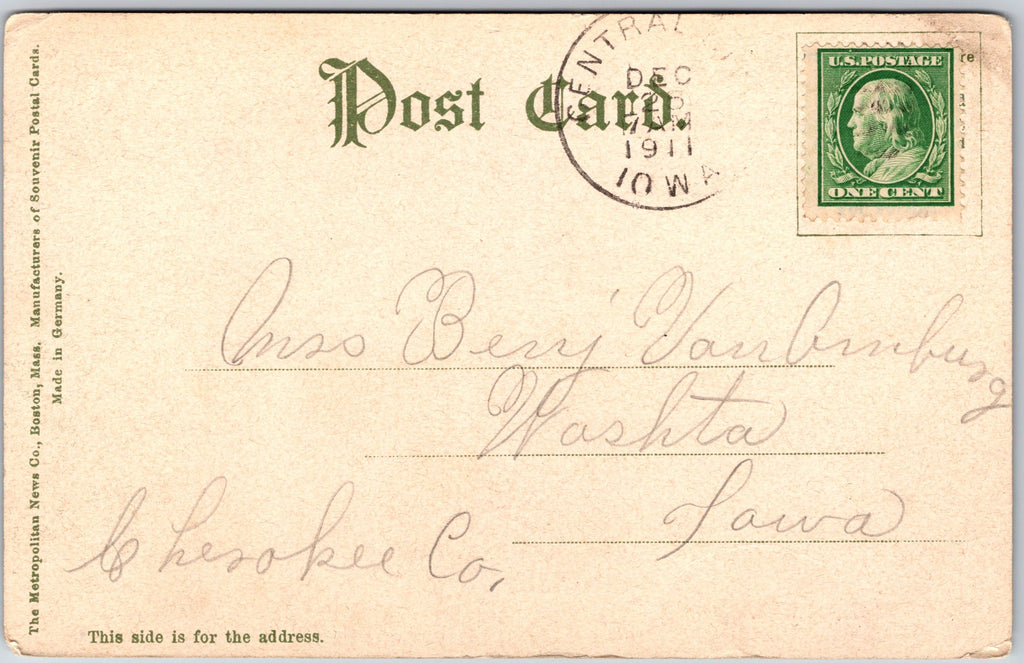 The Metropolitan News Co., Boston, Mass. Manufacturers of Souvenir Postal Cards.
Made in Germany.
Post Card.
CENTRAL
DEC
7 AM
1911
IOWA
U.S. POSTAGE
ONE CENT
re
Miss Berry Van Amburg
Washta
Iowa
Cherokee Co.,
This side is for the address.